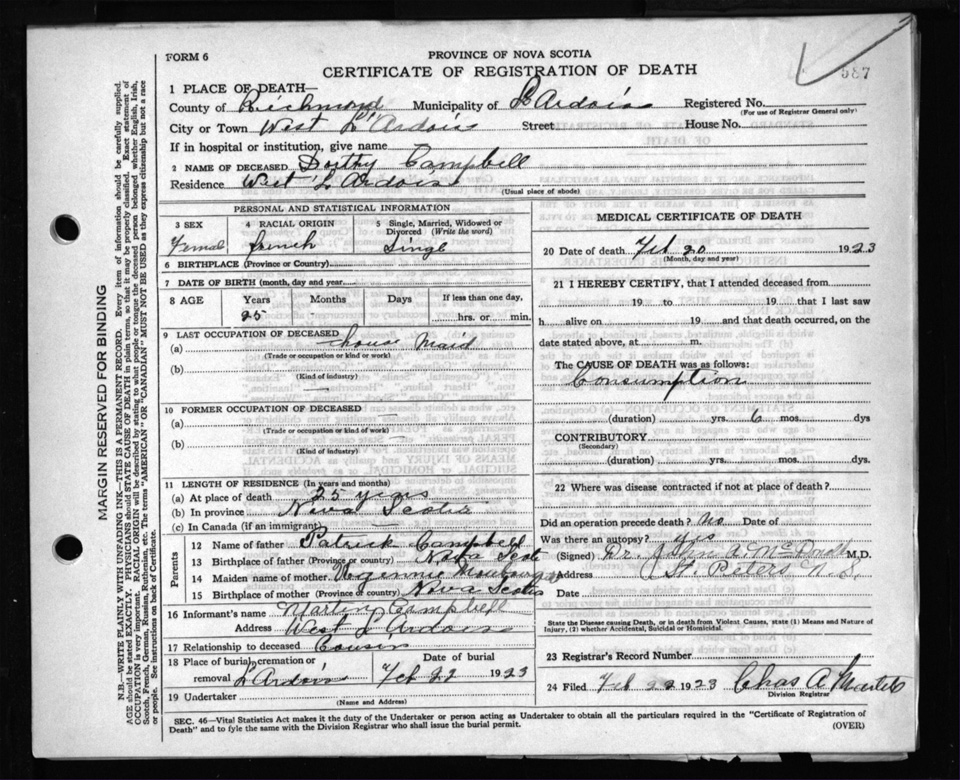 587
FORM 6
PROVINCE OF NOVA SCOTIA
CERTIFICATE OF REGISTRATION OF DEATH
1 PLACE OF DEATH—
County of Richmond Municipality of L'Ardoise Registered No.
(For use of Registrar General only)
City or Town West L'Ardoise Street House No.
If in hospital or institution, give name
2 NAME OF DECEASED Dorthy Campbell
Residence West L'Ardoise
(Usual place of abode)
PERSONAL AND STATISTICAL INFORMATION
3 SEX 4 RACIAL ORIGIN 5 Single, Married, Widowed or Divorced (Write the word)
Femal french Singl
6 BIRTHPLACE (Province or Country)
7 DATE OF BIRTH (month, day and year)
8 AGE Years Months Days If less than one day,
25 hrs. or min.
9 LAST OCCUPATION OF DECEASED
(a) house Maid
(Trade or occupation or kind or work)
(b)
(Kind of industry)
10 FORMER OCCUPATION OF DECEASED
(a)
(Trade or occupation or kind of work)
(b)
(Kind of industry)
11 LENGTH OF RESIDENCE (In years and months)
(a) At place of death 25 years
(b) In province Nova Scotia
(c) In Canada (if an immigrant)
Parents
12 Name of father Patrick Campbell
13 Birthplace of father (Province or country) Nova Scoti
14 Maiden name of mother
15 Birthplace of mother (Province or country) Nova Scotia
16 Informant's name Martin Campbell
Address West L'Ardoise
17 Relationship to deceased Cousin
18 Place of burial, cremation or removal L'Ardoise Date of burial Feb 22 1923
19 Undertaker
(Name and Address)
MEDICAL CERTIFICATE OF DEATH
20 Date of death Feb 20 1923
(Month, day and year)
21 I HEREBY CERTIFY, that I attended deceased from
19 to 19 that I last saw
h alive on 19 and that death occurred, on the
date stated above, at m.
The CAUSE OF DEATH was as follows:
Consumption
(duration) yrs. 6 mos. dys
CONTRIBUTORY
(Secondary)
(duration) yrs. mos. dys.
22 Where was disease contracted if not at place of death?
Did an operation precede death? No Date of
Was there an autopsy? yes
(Signed) Dr. A. McDonald M.D.
Address St. Peters N.S.
Date
State the Disease causing Death, or in death from Violent Causes, state (1) Means and Nature of
Injury, (2) whether Accidental, Suicidal or Homicidal.
23 Registrar's Record Number
24 Filed Feb 22 1923 Chas A
Division Registrar
SEC. 46—Vital Statistics Act makes it the duty of the Undertaker or person acting as Undertaker to obtain all the particulars required in the "Certificate of Registration of
Death" and to file the same with the Division Registrar who shall issue the burial permit. (OVER)
MARGIN RESERVED FOR BINDING
N.B.—WRITE PLAINLY WITH UNFADING INK—THIS IS A PERMANENT RECORD. Every item of information should be carefully supplied.
AGE should be stated EXACTLY. PHYSICIANS should STATE CAUSE OF DEATH in plain terms, so that it may be properly classified. Exact statement of
OCCUPATION is very important. RACIAL ORIGIN will be described by stating to what people or tongue the deceased person belonged whether English, Irish,
Scotch, French, German, Russian, Ruthenian, etc. The terms "AMERICAN" OR "CANADIAN" MUST NOT BE USED as they express citizenship but not a race
or people. See instructions on back of Certificate.